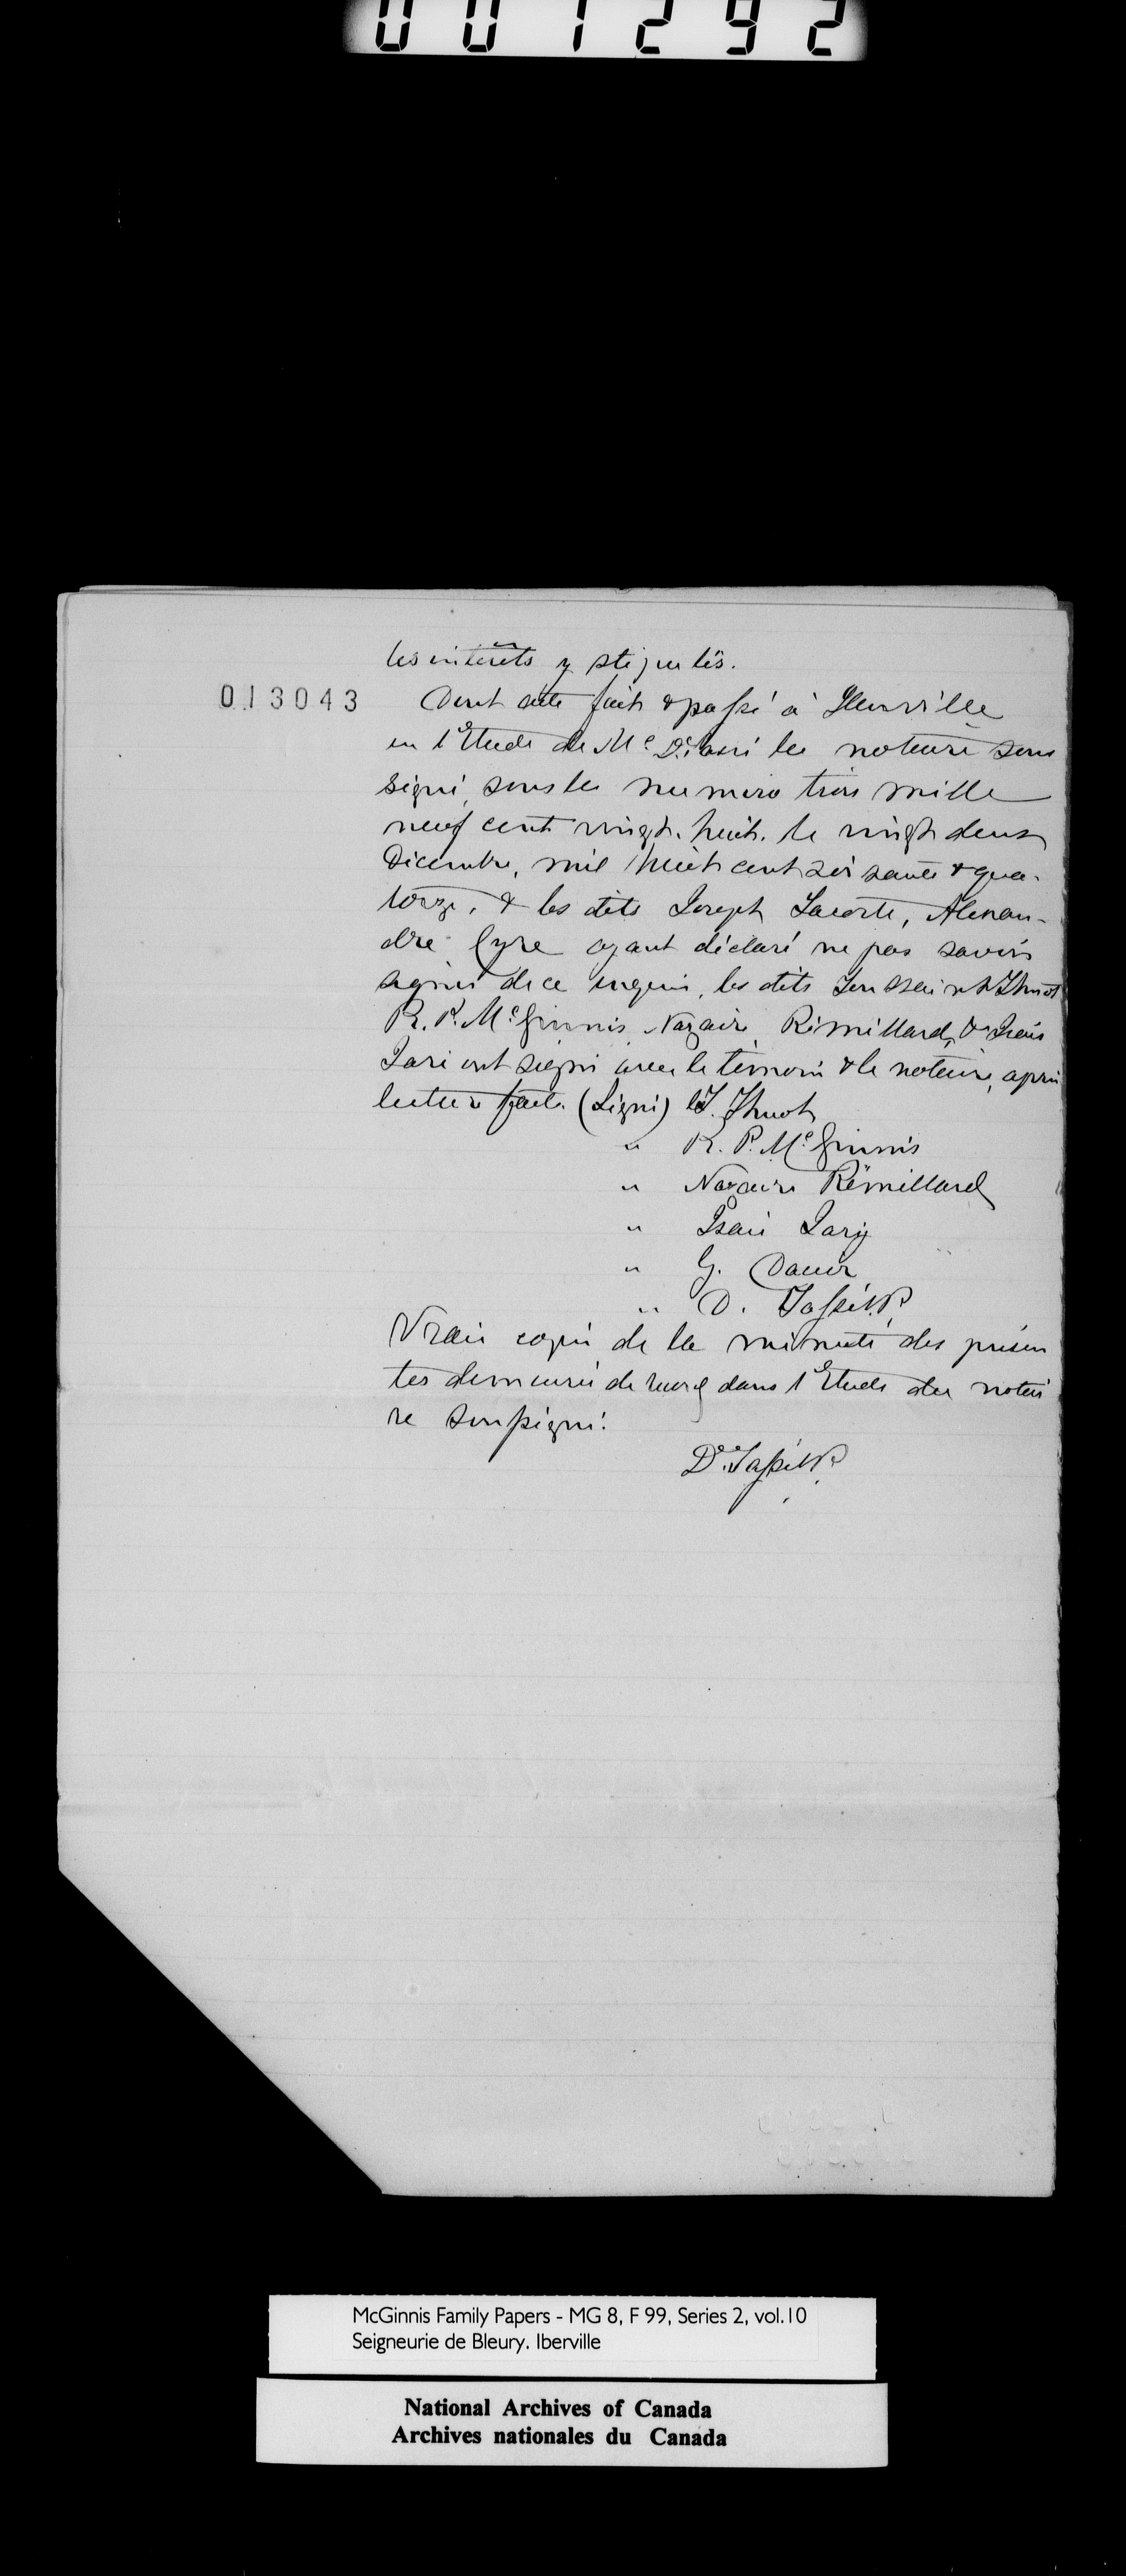 001292
les intérêts y stipulés.
013043
Dont acte fait & passé à Henriville
en l'Etude de Mc. D. Tassé le notaire sous
signé, sous le numero trois mille
neuf cent vingt-huit. le vingt deux
Décembre, mil huit cent soixante & qua-
torze, & les dits Joseph Lacoste, Alexan-
dre Cyre ayant déclaré ne pas savoir
signer de ce requis, les dits Toussaint Thuot
R. P. McGinnis, Nazaire Rémillard, & Isaïe
Lari ont signé avec le témoin & le notaire, après
lecture faite. (Signé) T. Thuot
" R. P. McGinnis
" Nazaire Rémillard
" Isaïe Lary
" G.
" D. Tassé N.P.
Vraie copie de la minute des présen
tes demeurée de record dans l'Etude du notai
re soussigné.
D. Tassé N.P.
McGinnis Family Papers - MG 8, F 99, Series 2, vol.10
Seigneurie de Bleury. Iberville
National Archives of Canada
Archives nationales du Canada